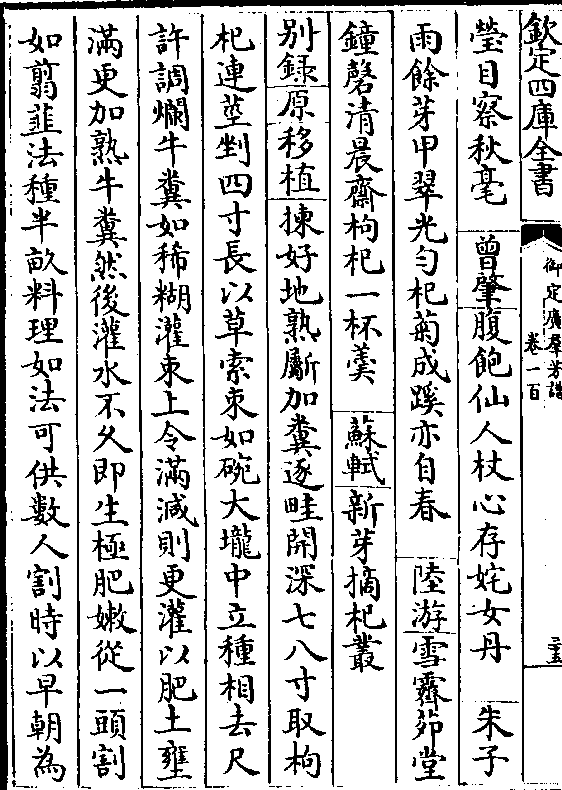 欽定四庫全書
御定廣羣芳譜
卷一百
瑩目察秋毫 曾肇腹飽仙人杖心存姹女丹 朱子
雨餘芽甲翠光勻杞菊成蹊亦自春 陸游雪霽茆堂
鐘磬清晨齋枸杞一杯羹 蘇軾新芽摘杞叢
别錄原移植揀好地熟斸加糞逐畦開深七八寸取枸
杞連莖剉四寸長以草索束如碗大壠中立種相去尺
許調爛牛糞如稀糊灌束上令滿減則更灌以肥土壅
滿更加熟牛糞然後灌水不久即生極肥嫩從一頭割
如翦韮法種半畝料理如法可供數人割時以早朝為